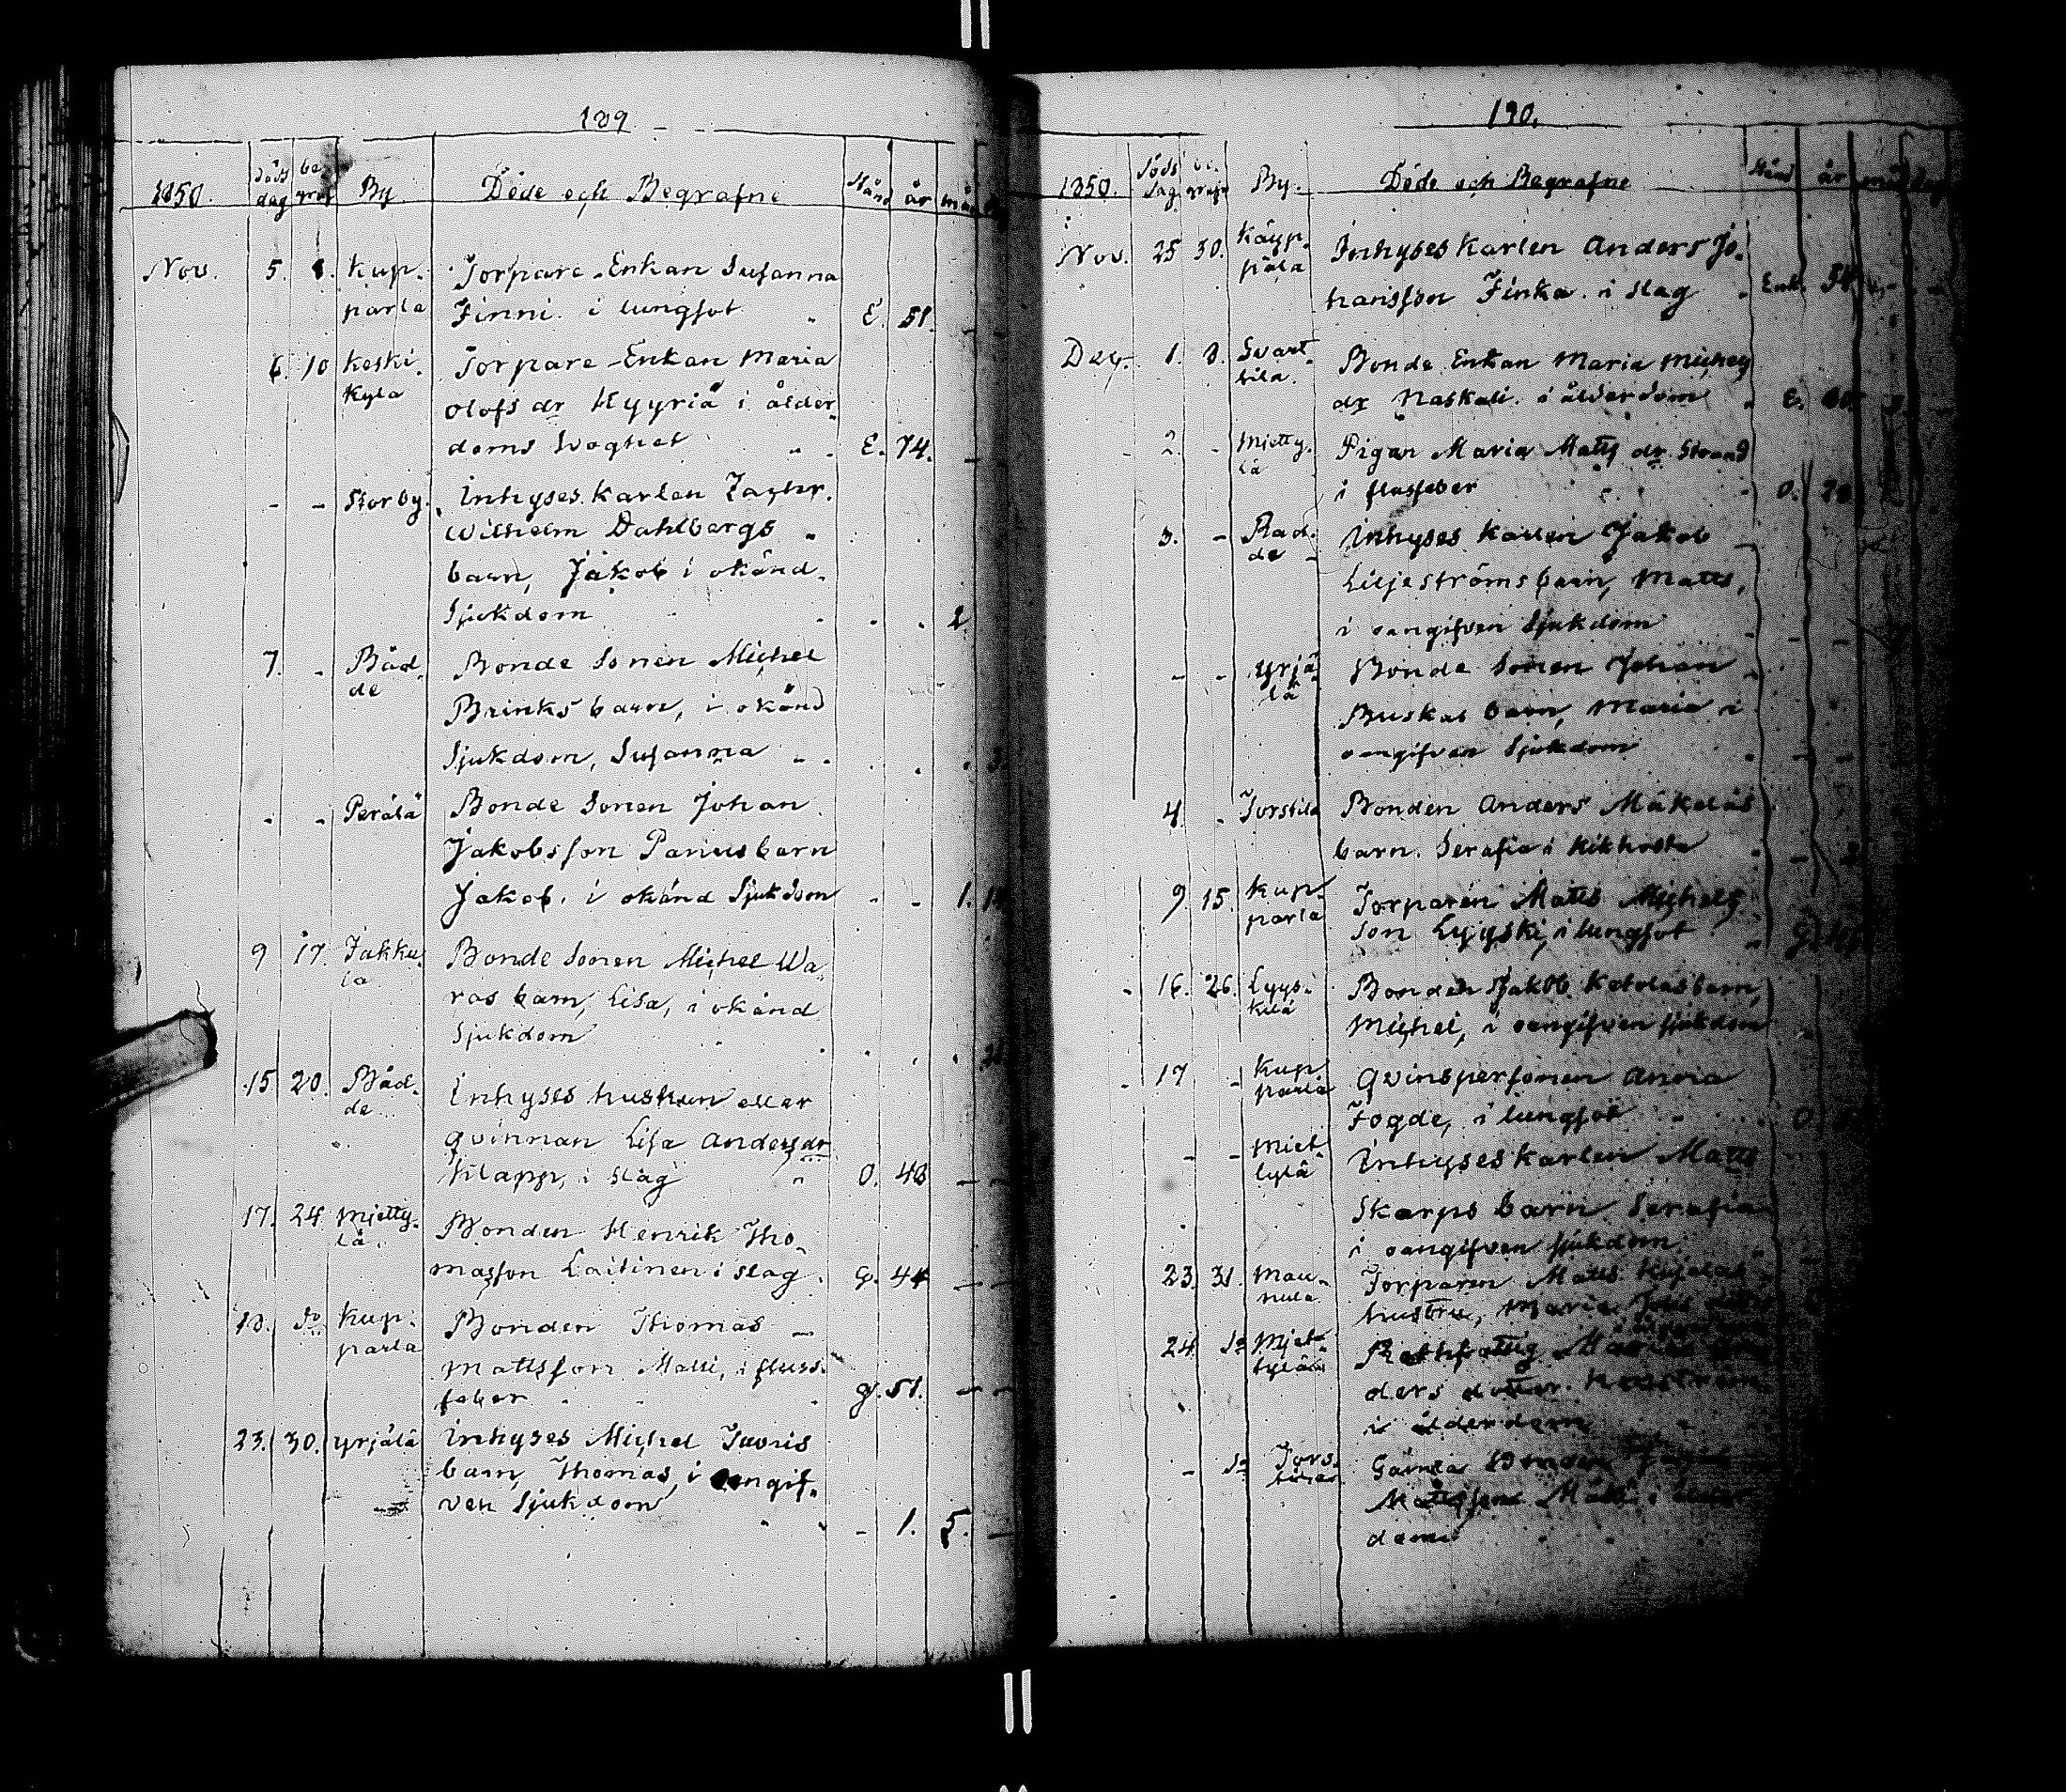 189
1850. döds dag be graf By Döde och Begrafne Stånd år mån
Nov. 5. 8. Kup- Torpare-Enkan Susanna
parla Finni. i lungsot E. 51. -
6. 10 Keski- Torpare-Enkan Maria
Kylä Olofs dr Hyyriä i ålder-
doms Svaghet E. 74. -
- - Storby. Inhyses Karlen Zachr.
Wilhelm Dahlbergs
barn, Jakob i okänd
Sjukdom 2.
7. - Båd- Bonde Sonen Michel
de Brinks barn, i okänd
Sjukdom, Susanna 3.
- - Perälä Bonde Sonen Johan
Jakobsson Panus barn
Jakob. i okänd Sjukdom - - 1.
9 17. Jakku- Bonde Sonen Michel Wa-
la ras barn, Lisa, i okänd
Sjukdom
15 20. Båd- Inhyses huskun eller
de qvinnan Lisa Andersdr
Klapp, i slag O. 48 - -
17. 24 Mietty- Bonden Henrik Tho-
lä. masson Laitinen i slag. G. 44 - -
18. do Kup- Bonden Thomas
parla Mattsson Matti, i fluss-
feber G. 51. - -
23. 30. Yrjälä Inhyses Michel Juonis
barn, Thomas, i oangif-
ven Sjukdom - 1. 5. -
190.
1850. döds dag be- grafn By. Döde och Begrafne Stånd år mån dag
Nov. 25 30. Käyp- Inhyses Karlen Anders Jo-
pälä hansson Finka. i slag Enk. 54
Dec. 1. 8. Svart- Bonde Enkan Maria Michels
bila. dr Naskali. i ålderdom E.
- 2. - Mietty- Pigan Maria Matts dr Strand
lä i flussfeber O.
3. - Rad- Inhyses Karlen Jakob
de Liljeströms barn, Matts,
i oangifven Sjukdom
- - Yrjä- Bonde Sonen Johan
lä Buskas barn, Maria i
oangifven Sjukdom
4. - Torstila Bonden Anders Mäkeläs
barn. Serafia i Kikhosta
9. 15. Kup- Torparen Matts Michels
parla son Lyyski, i lungsot G.
16. 26. Lyys- Bonden Jakob Kotolas barn,
kilä Michel, i oangifven sjukdom
17 - Kup- Qvinspersonen Anna
parla Fogde, i lungsot O.
- - Miet- Inhyses Karlen Matts
tylä Skarps barn Serafia
i oangifven sjukdom.
23. 31. Mau- Torparen Matts
nula hustru, Maria
24. do Miet- Rothfattig
tylä ders dotter.
i ålderdom
- do Tors- Gamla Bonden
Mattsson i ålder-
dom